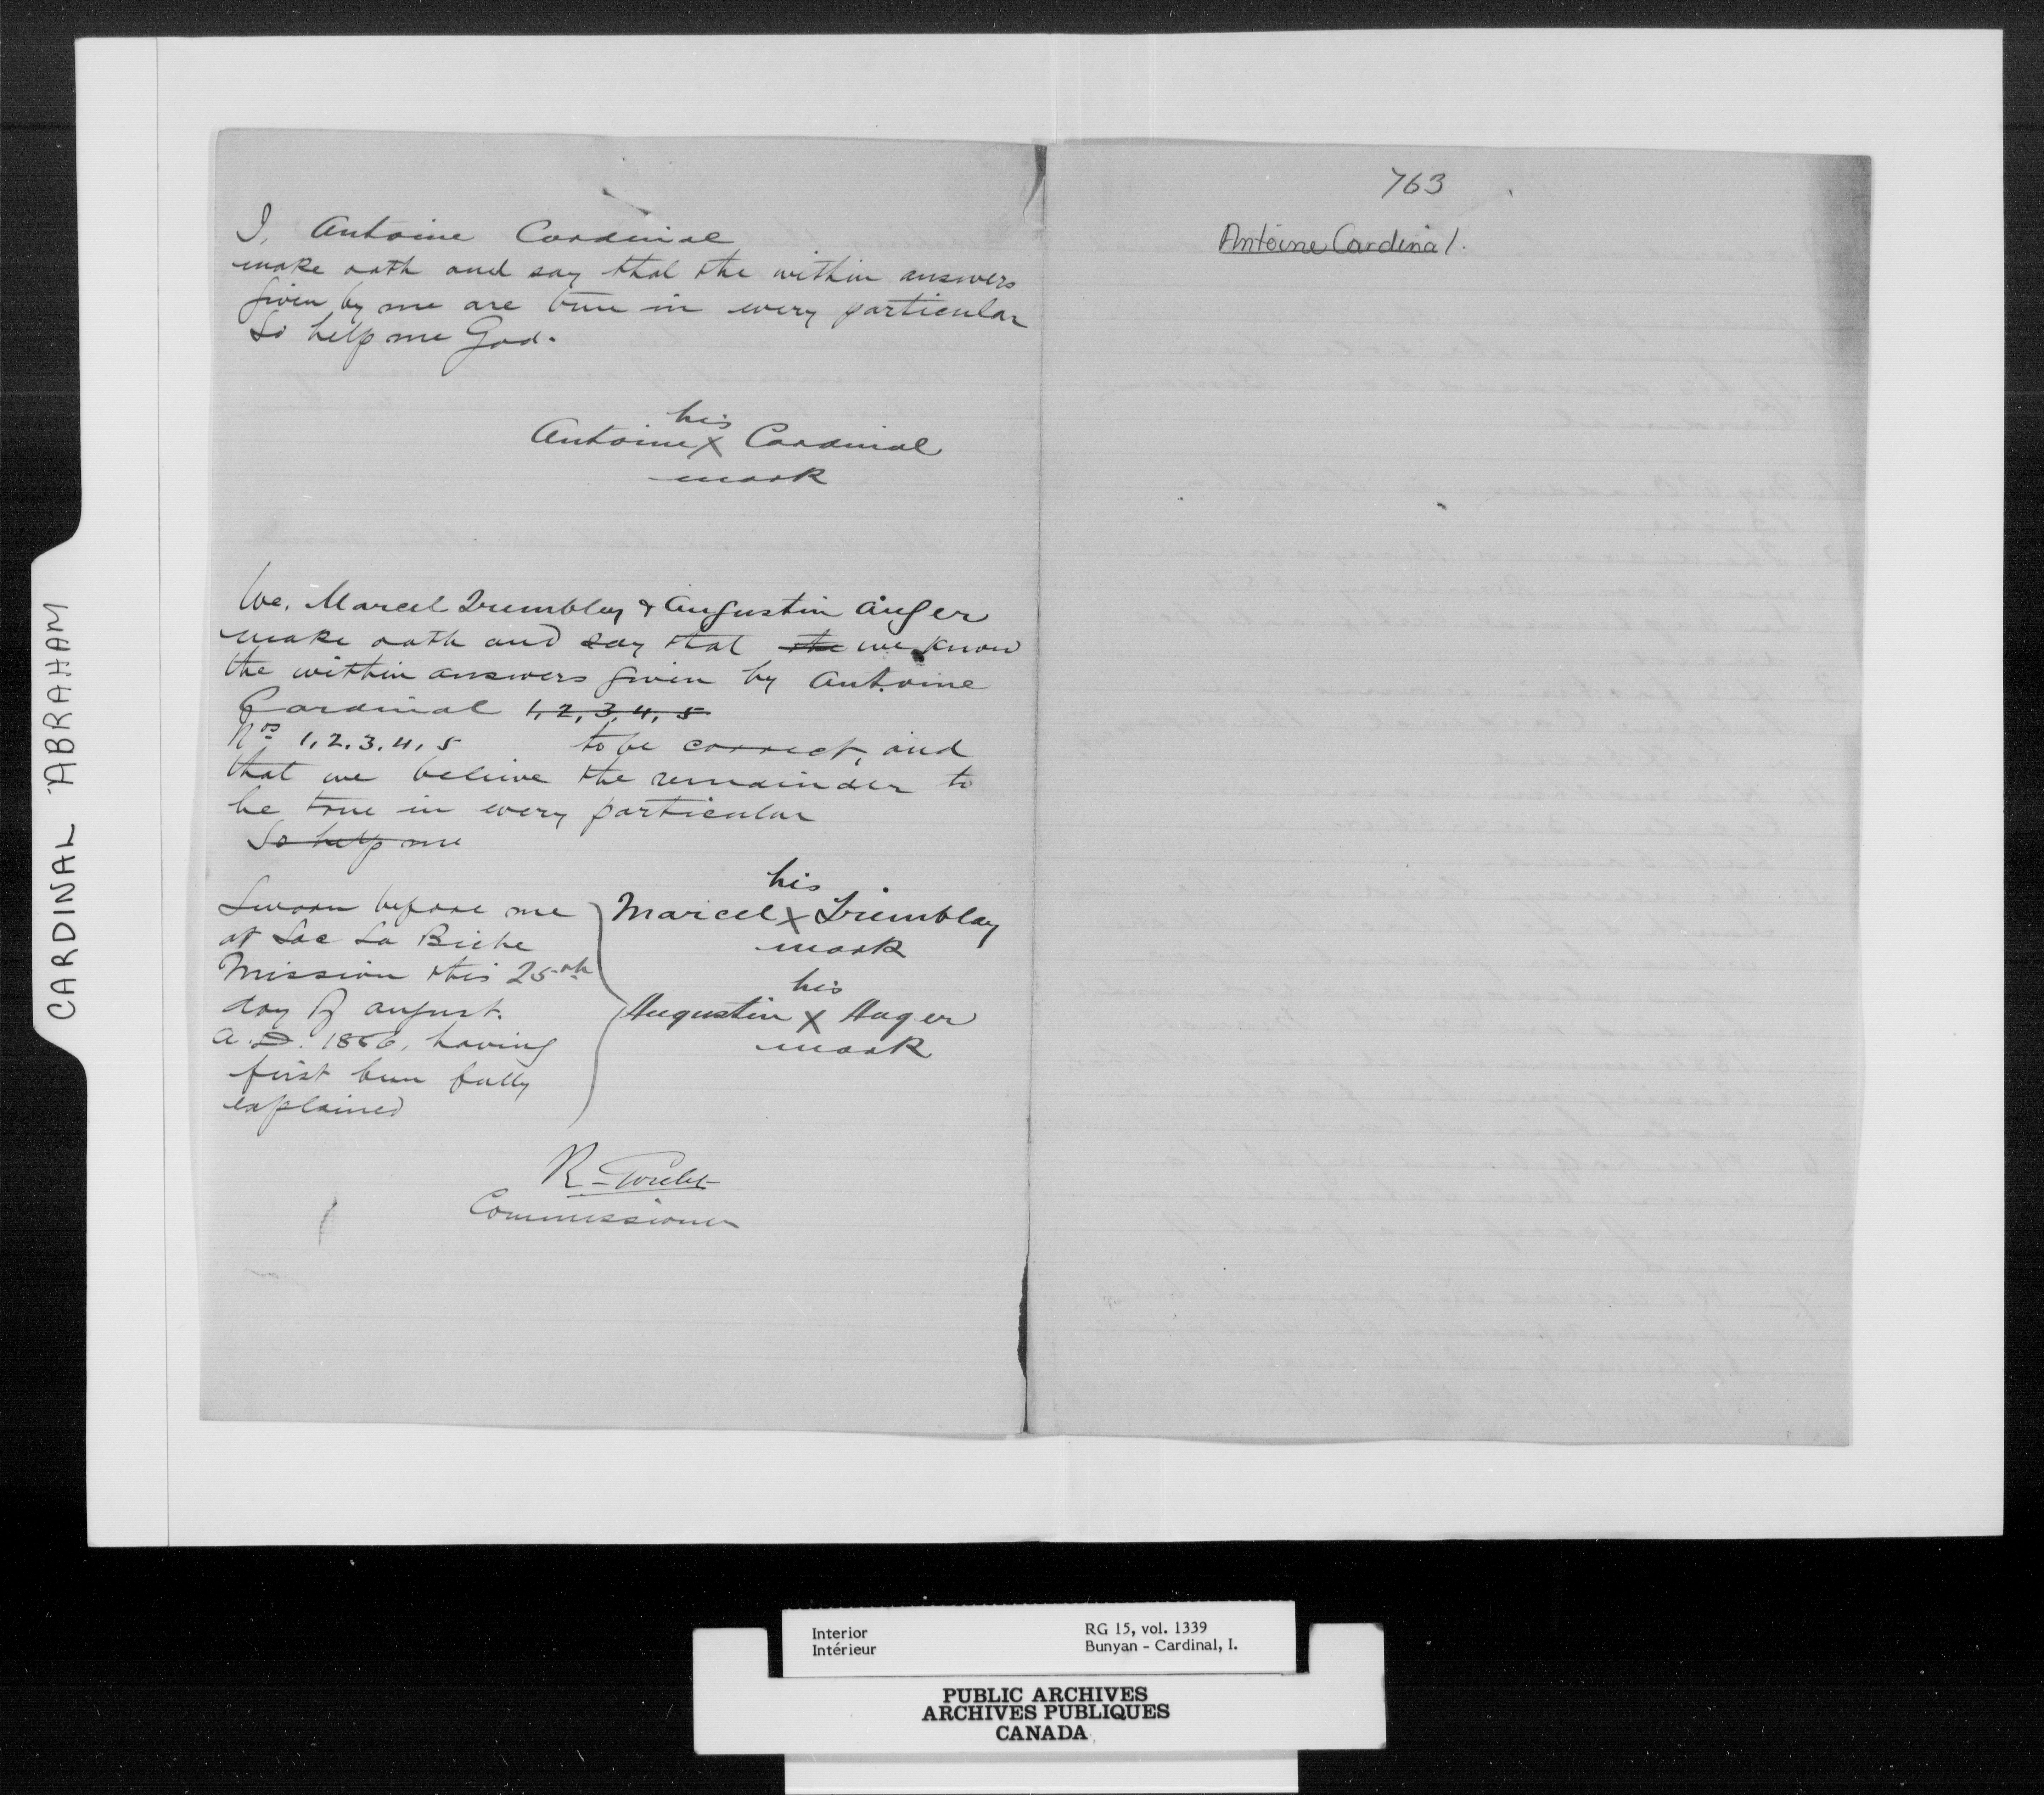 CARDINAL ABRAHAM
I, Antoine Cardinal
make oath and say that the within answers
given by me are true in every particular
So help me God.
his
Antoine X Cardinal
mark
We, Marcel Trembley & Augustin Auger
make oath and say that the we know
the within answers given by Antoine
Cardinal 1, 2, 3, 4, 5
Nos 1, 2, 3, 4, 5 to be correct, and
that we believe the remainder to
be true in every particular
So help me
Sworn before me
at Lac La Biche
Mission this 25th
day of august.
A.D. 1886, having
first been fully
explained
his
Marcel X Tremblay
mark
his
Augustin X Auger
mark
R.
Commissioner
763
Antoine Cardinal.
Interior
Intérieur
RG 15, vol. 1339
Bunyan - Cardinal, I.
PUBLIC ARCHIVES
ARCHIVES PUBLIQUES
CANADA